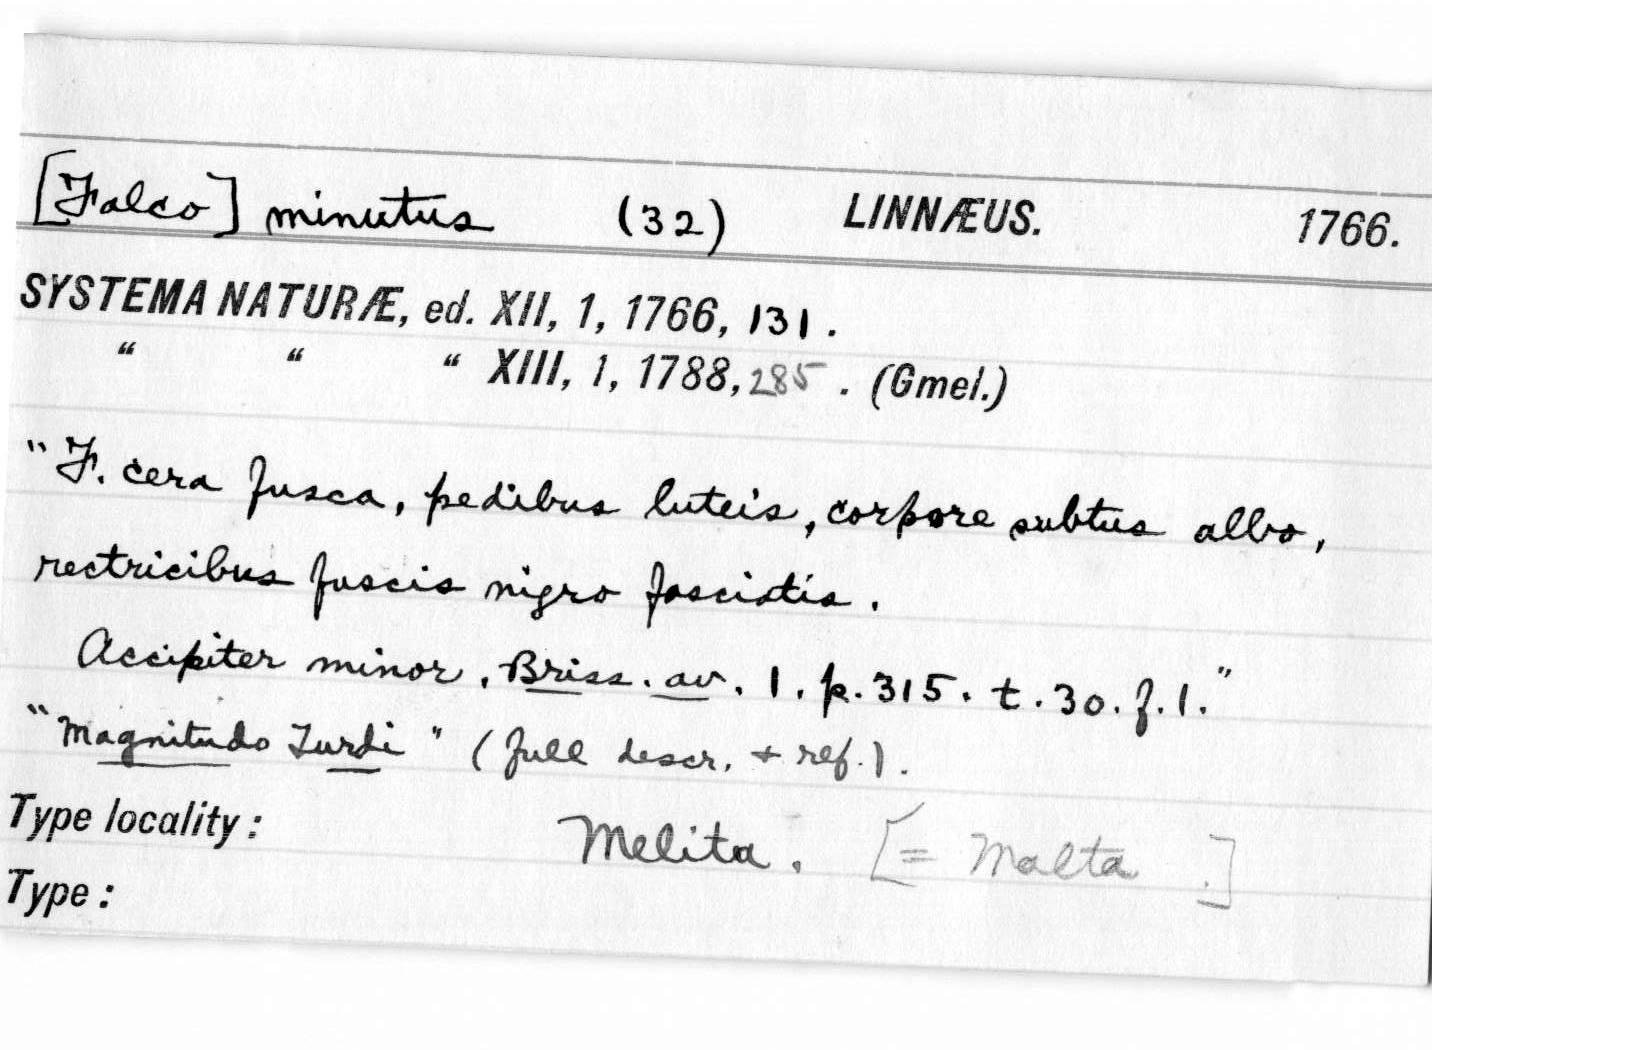 [Falco] minutus (32) LINNÆUS. 1766.
SYSTEMA NATURÆ, ed. XII, 1, 1766, 131.
“ “ “ XIII, 1, 1788, 285. (Gmel.)
"F. cera fusca, pedibus luteis, corpore subtus albo,
rectricibus fuscis nigro fasciatis.
Accipiter minor. Briss. av. 1. p. 315. t. 30. f. 1."
"Magnitudo Turdi" (full descr. + ref.).
Type locality: Melita. [= Malta.]
Type: